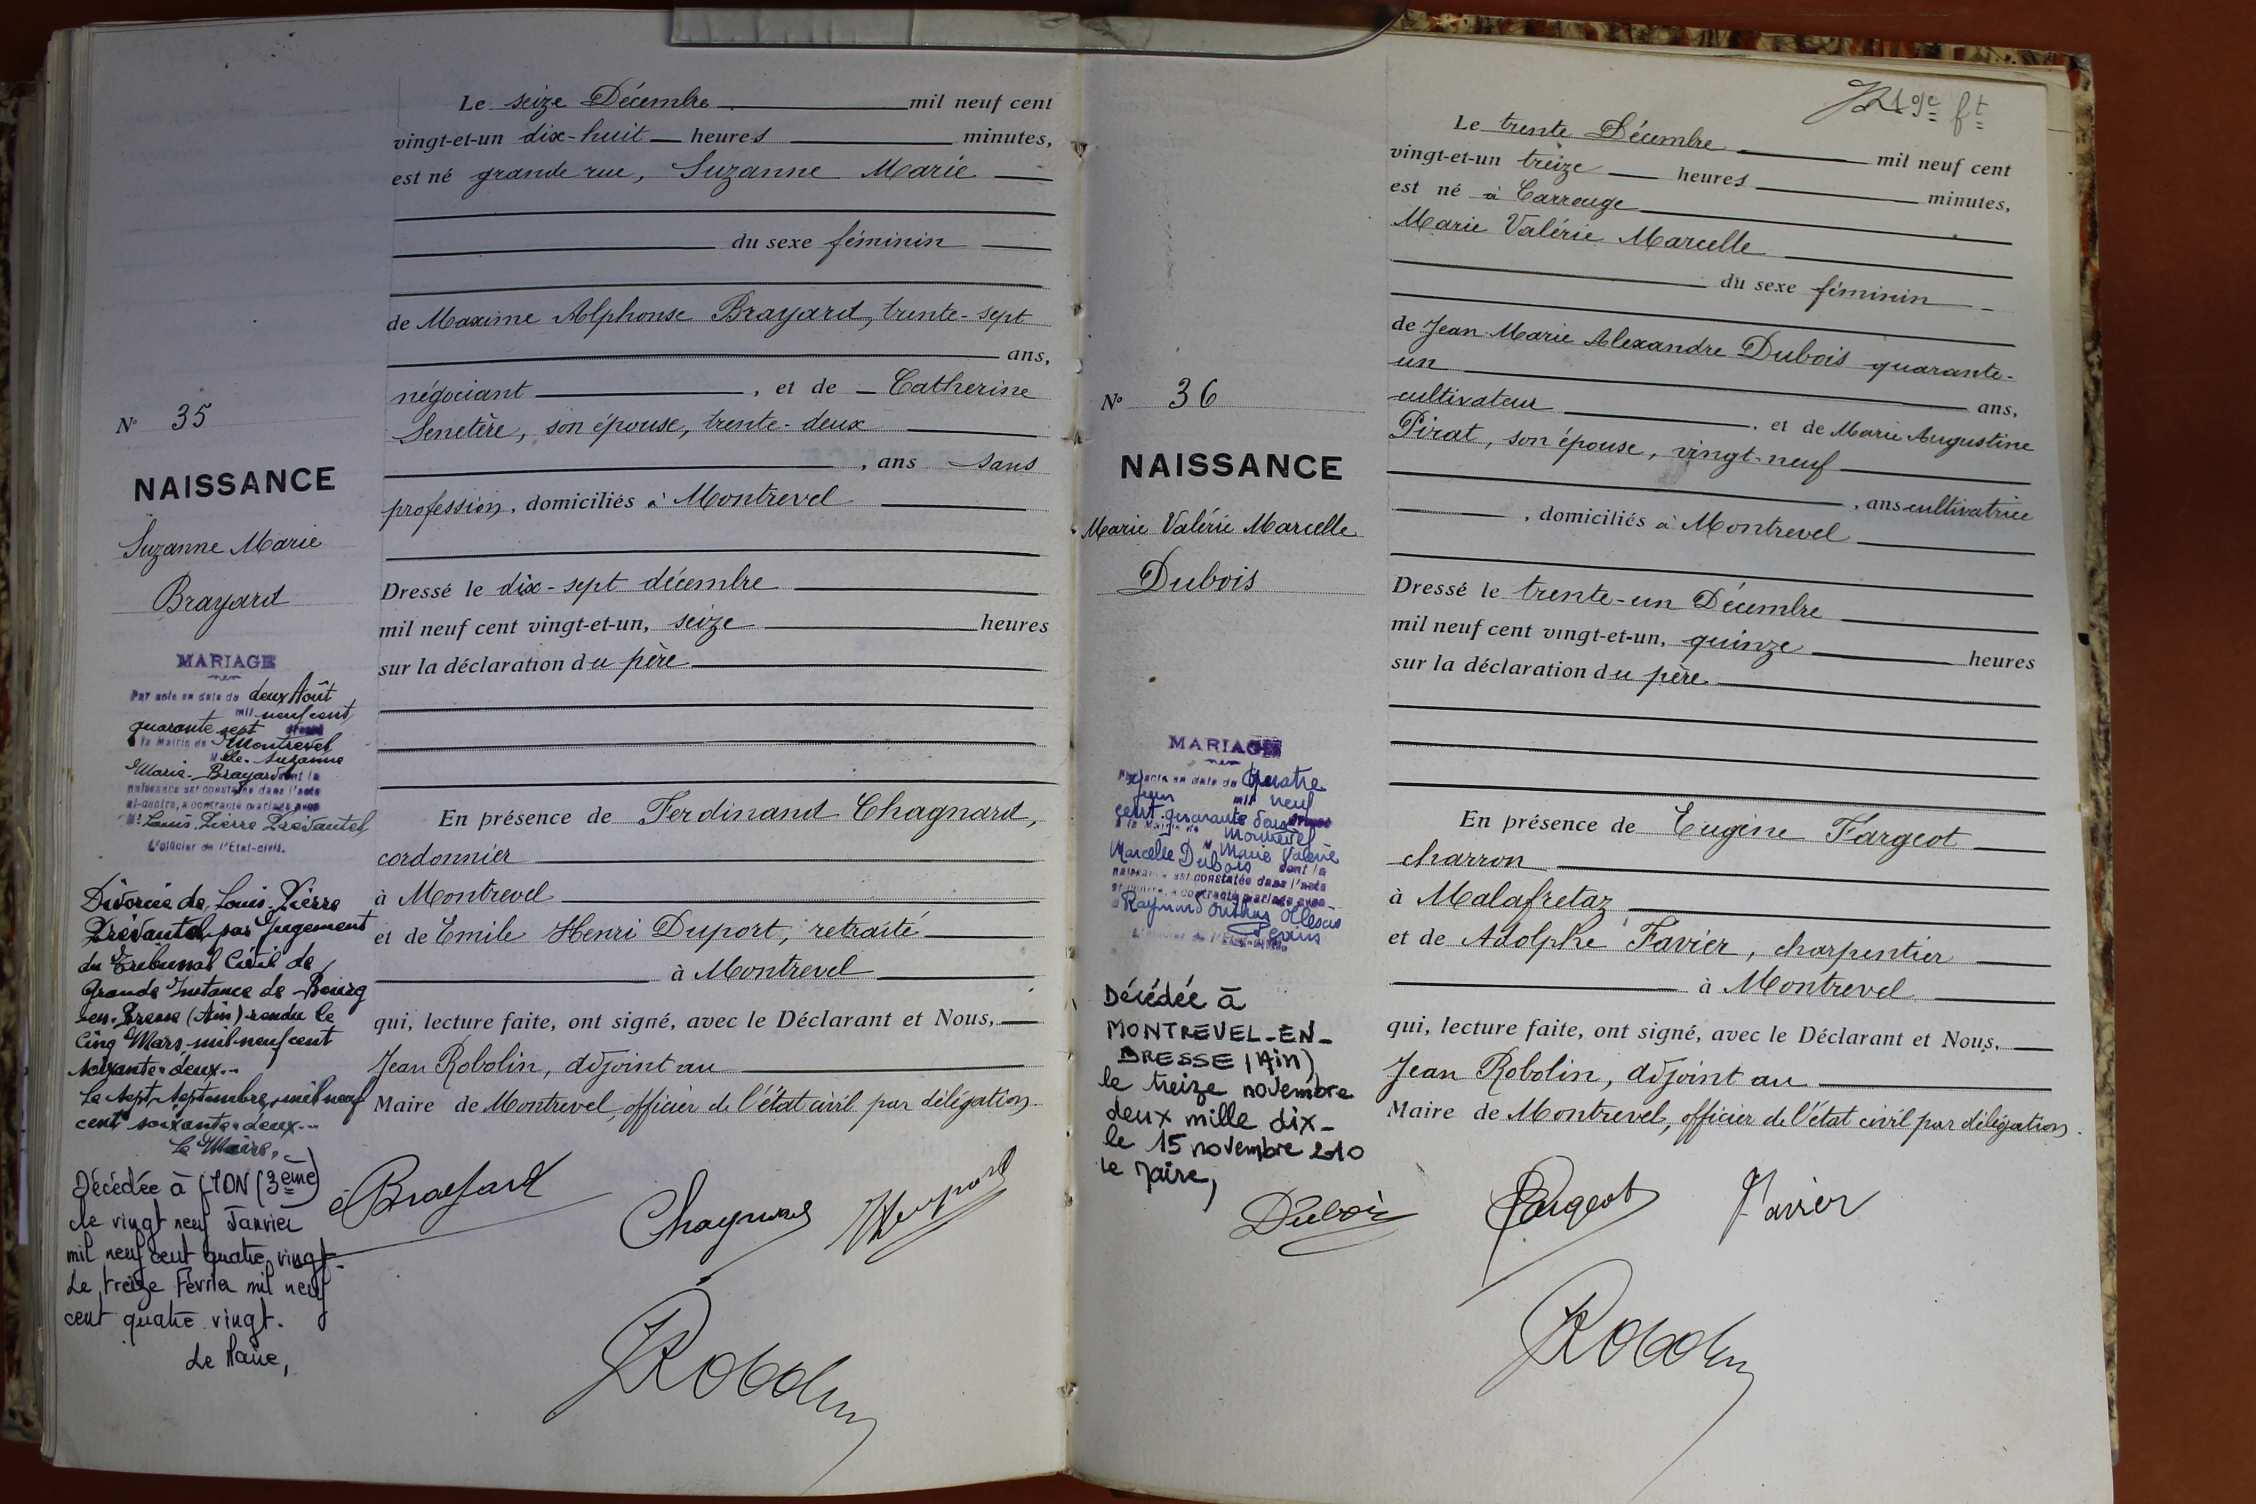 Le seize Décembre mil neuf cent
vingt-et-un dix-huit heures minutes,
est né grande rue, Suzanne Marie
du sexe féminin
de Maxime Alphonse Brayard, trente-sept
ans,
négociant, et de Catherine
Senetère, son épouse, trente-deux
, ans sans
profession, domiciliés à Montrevel
Dressé le dix-sept décembre
mil neuf cent vingt-et-un, seize heures
sur la déclaration du père
En présence de Ferdinand Chagnard,
cordonnier
à Montrevel
et de Emile Henri Duport, retraité
à Montrevel
qui, lecture faite, ont signé, avec le Déclarant et Nous,
Jean Robolin, adjoint au
Maire de Montrevel, officier de l'état civil par délégation
Brayard
Chagnard
Duport
JRobolin
N° 35
NAISSANCE
Suzanne Marie
Brayard
MARIAGE
Par acte en date du deux Août
mil neuf cent
quarante sept dressé
à la Mairie de Montrevel
Mlle Suzanne
Marie Brayard dont la
naissance est constatée dans l'acte
ci-contre, a contracté mariage avec
Mr Louis Pierre
L'officier de l'Etat-civil.
Divorcée de Louis Pierre
par Jugement
du Tribunal Civil de
Grande Instance de Bourg
en-Bresse (Ain) rendu le
Cinq Mars mil neuf cent
soixante deux
Le sept Septembre mil neuf
cent soixante deux
Le Maire,
Décédée à LYON (3ème)
le vingt neuf Janvier
mil neuf cent quatre vingt.
Le treize Février mil neuf
cent quatre vingt.
Le Maire,
JR 19e ft
Le trente Décembre mil neuf cent
vingt-et-un treize heures minutes,
est né à Carrouge
Marie Valérie Marcelle
du sexe féminin
de Jean Marie Alexandre Dubois quarante-
un
ans,
cultivateur, et de Marie Augustine
Pirat, son épouse, vingt-neuf
, ans cultivatrice
, domiciliés à Montrevel
Dressé le trente-un Décembre
mil neuf cent vingt-et-un, quinze heures
sur la déclaration du père
En présence de Eugène Fargeot
charron
à Malafretaz
et de Adolphe Favier, charpentier
à Montrevel
qui, lecture faite, ont signé, avec le Déclarant et Nous,
Jean Robolin, adjoint au
Maire de Montrevel, officier de l'état civil par délégation.
Dubois
Fargeot
Favier
JRobolin
N° 36
NAISSANCE
Marie Valérie Marcelle
Dubois
MARIAGE
Par acte en date du quatre
juin mil neuf
cent quarante dressé
à la Mairie de Montrevel
M Marie Valérie
Marcelle Dubois dont la
naissance est constatée dans l'acte
ci-contre, a contracté mariage avec
Raymond
L'officier de l'Etat-civil
Décédée à
MONTREVEL-EN-
BRESSE (Ain)
le treize novembre
deux mille dix-
le 15 novembre 2010
le Maire,